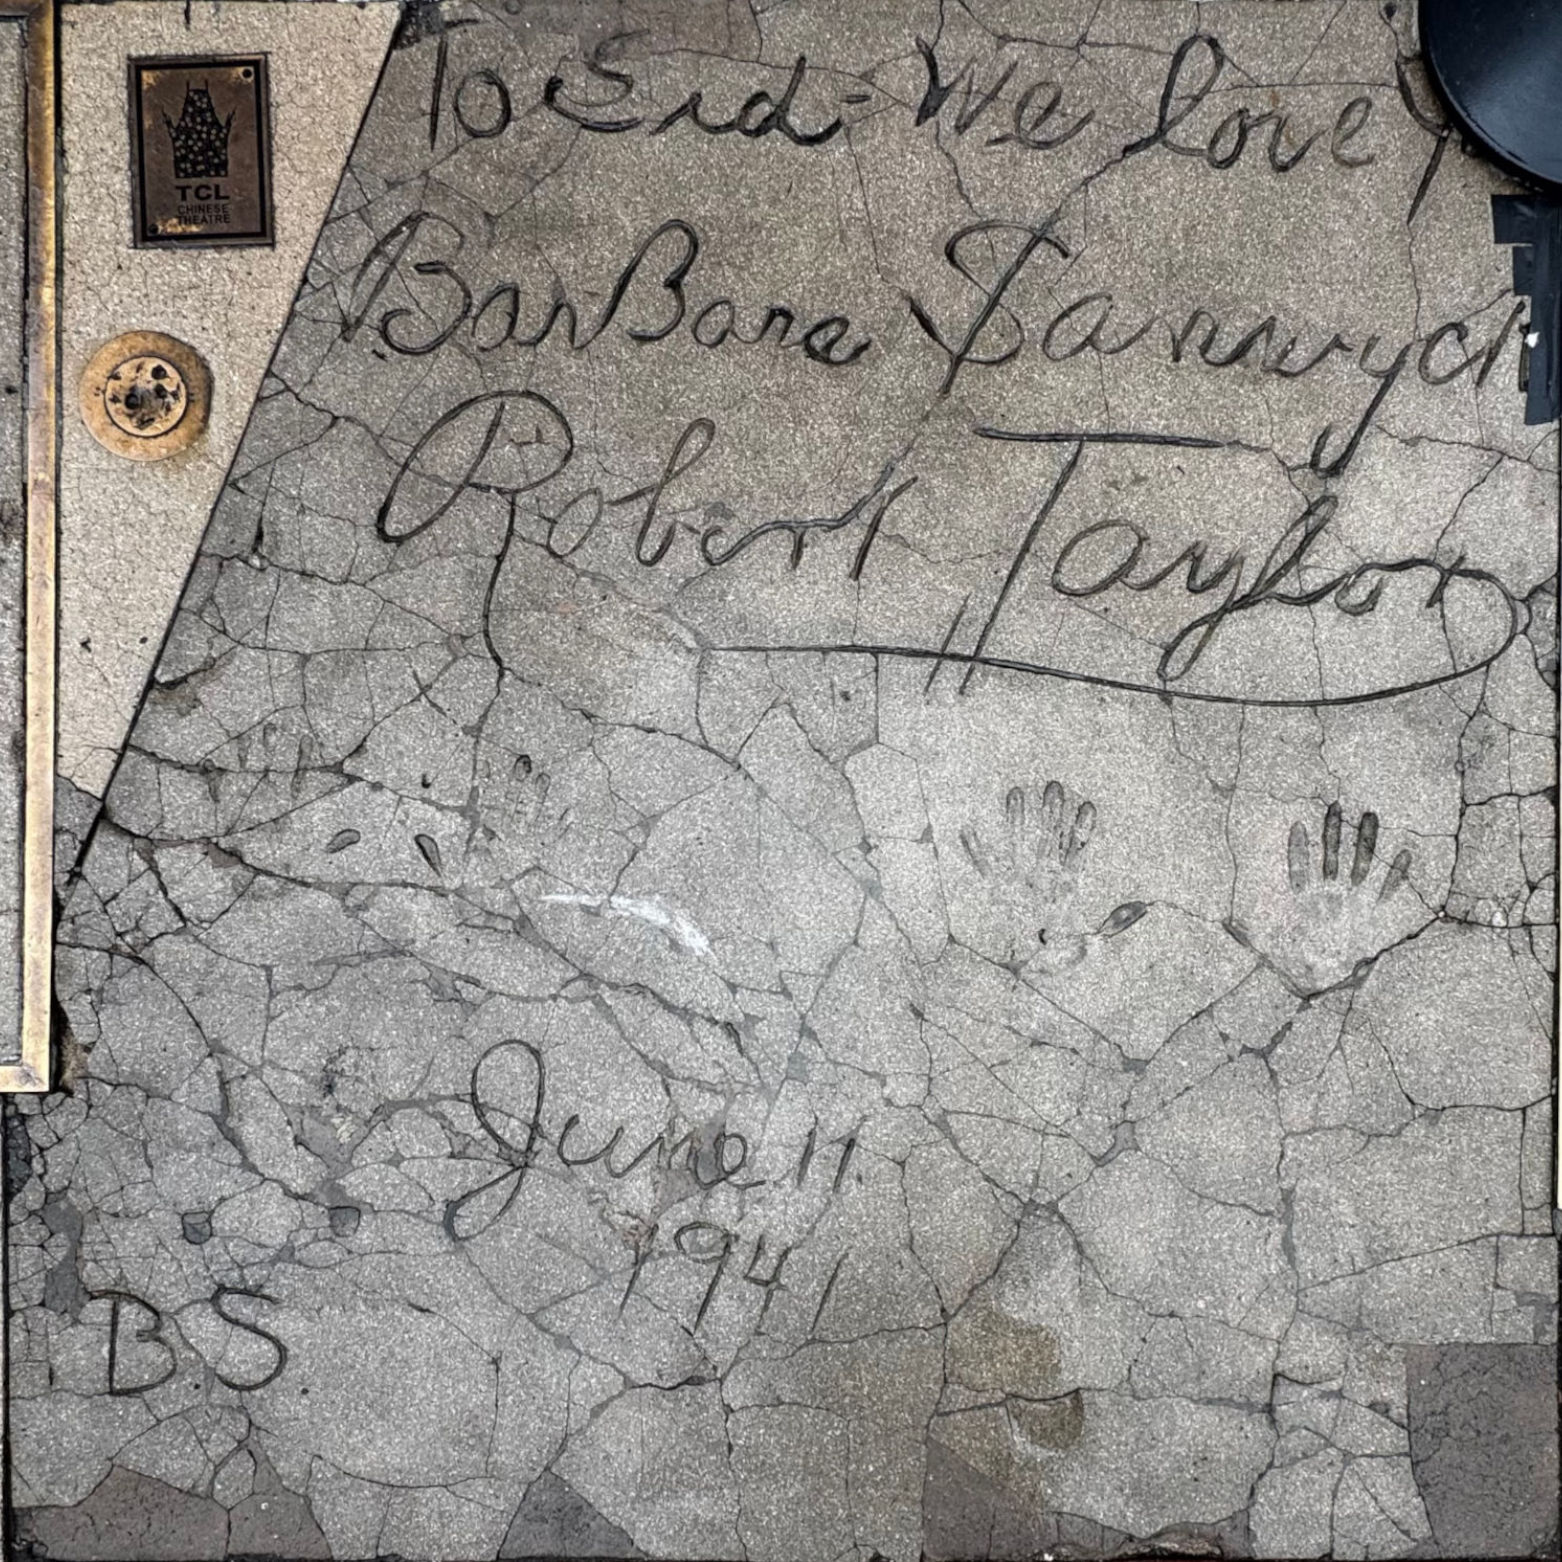 TCL
CHINESE
THEATRE
To Sid - We love
BarBara Stanwyck
Robert Taylor
June 11
1941
BS